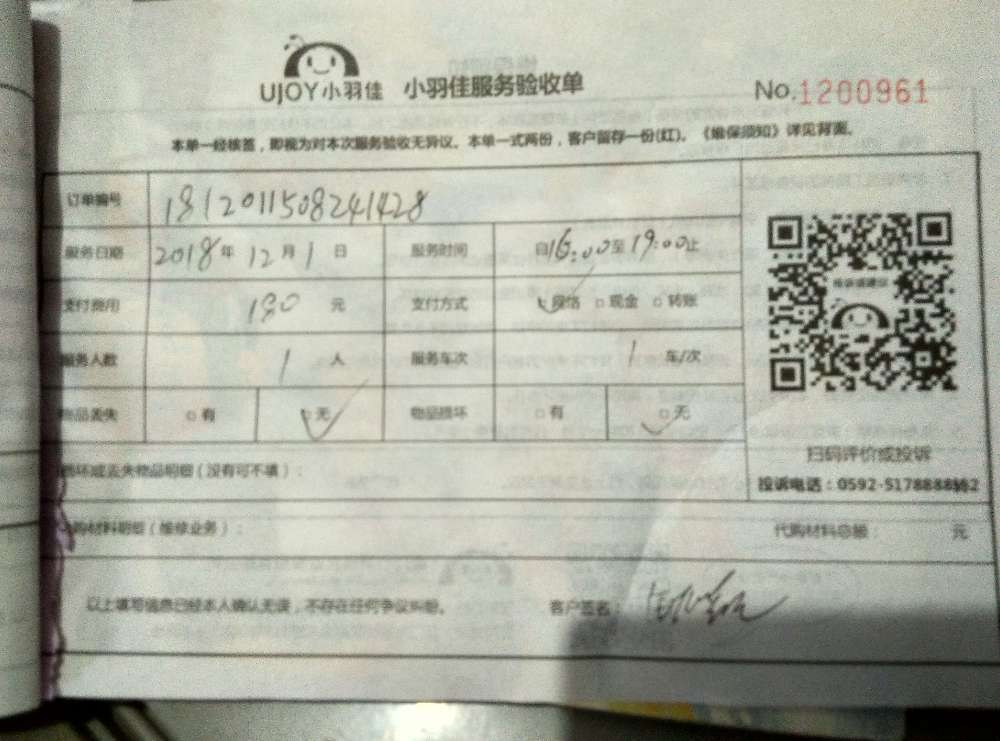 UJOY小羽佳 小羽佳服务验收单 No.1200961
本单一经核签，即视为对本次服务验收无异议。本单一式两份，客户留存一份(红)。《维保须知》详见背面。
订单编号 1812011508241428
服务日期 2018年12月1日 服务时间 自16:00至19:00止
支付费用 190元 支付方式 网络 □现金 □转账
服务人数 1人 服务车次 1车/次
物品丢失 □有 □无 物品损坏 □有 □无
损坏或丢失物品明细（没有可不填）：
扫码评价或投诉
投诉电话：0592-5178888转2
代购材料明细（维修业务）： 代购材料总额： 元
以上填写信息已经本人确认无误，不存在任何争议纠纷。 客户签名：